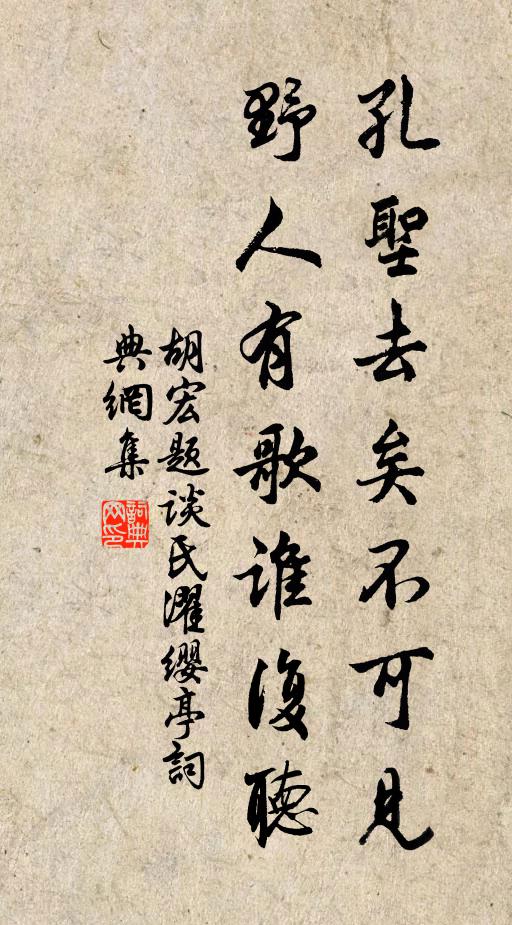 孔聖去矣不可見
野人有歌誰復聽
胡宏题谈氏濯缨亭詞
典網集
詞典
网印